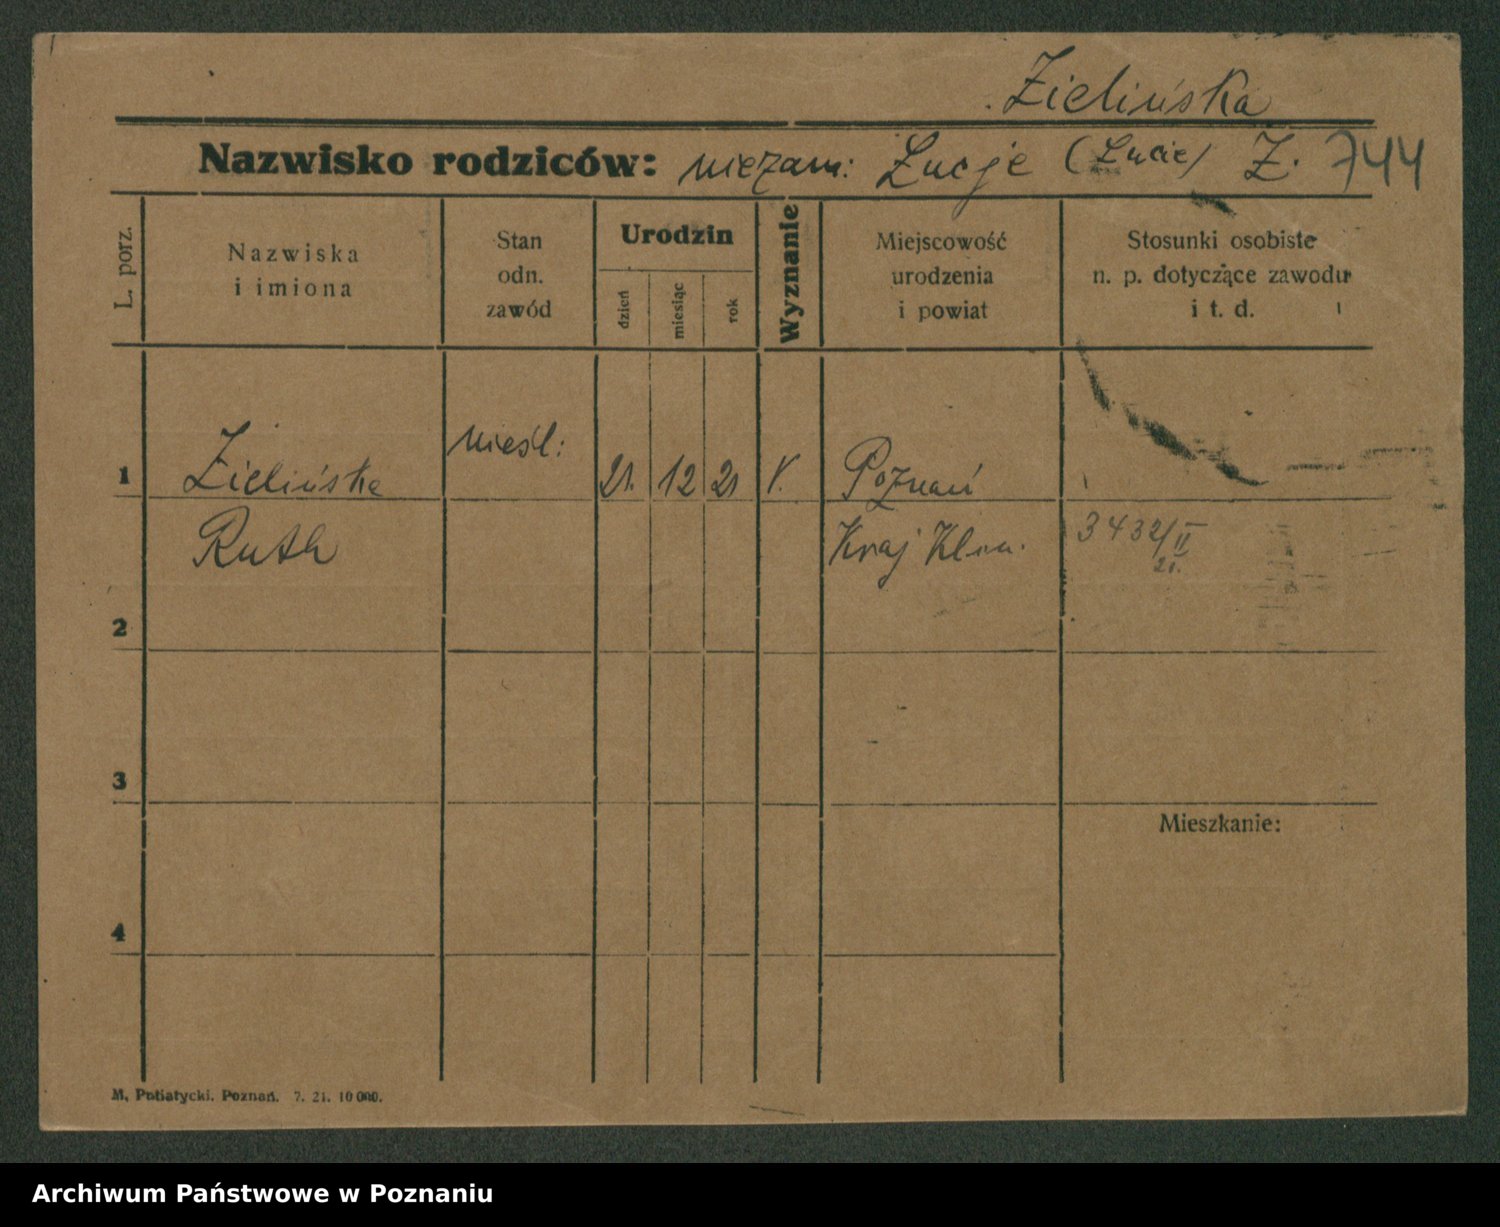 Zielińska
Nazwisko rodziców: niezam: Łucje (Lucie) Z. 744
L. porz.
Nazwiska
i imiona
Stan
odn.
zawód
Urodzin
dzień
miesiąc
rok
Wyznanie
Miejscowość
urodzenia
i powiat
Stosunki osobiste
n. p. dotyczące zawodu
i t. d.
1 Zielińska nieśl: 21. 12 21 Poznań
Ruth Kraj Klin. 3432/II
21.
2
3
Mieszkanie:
4
M. Putiatycki. Poznań. 7. 21. 10 000.
Archiwum Państwowe w Poznaniu